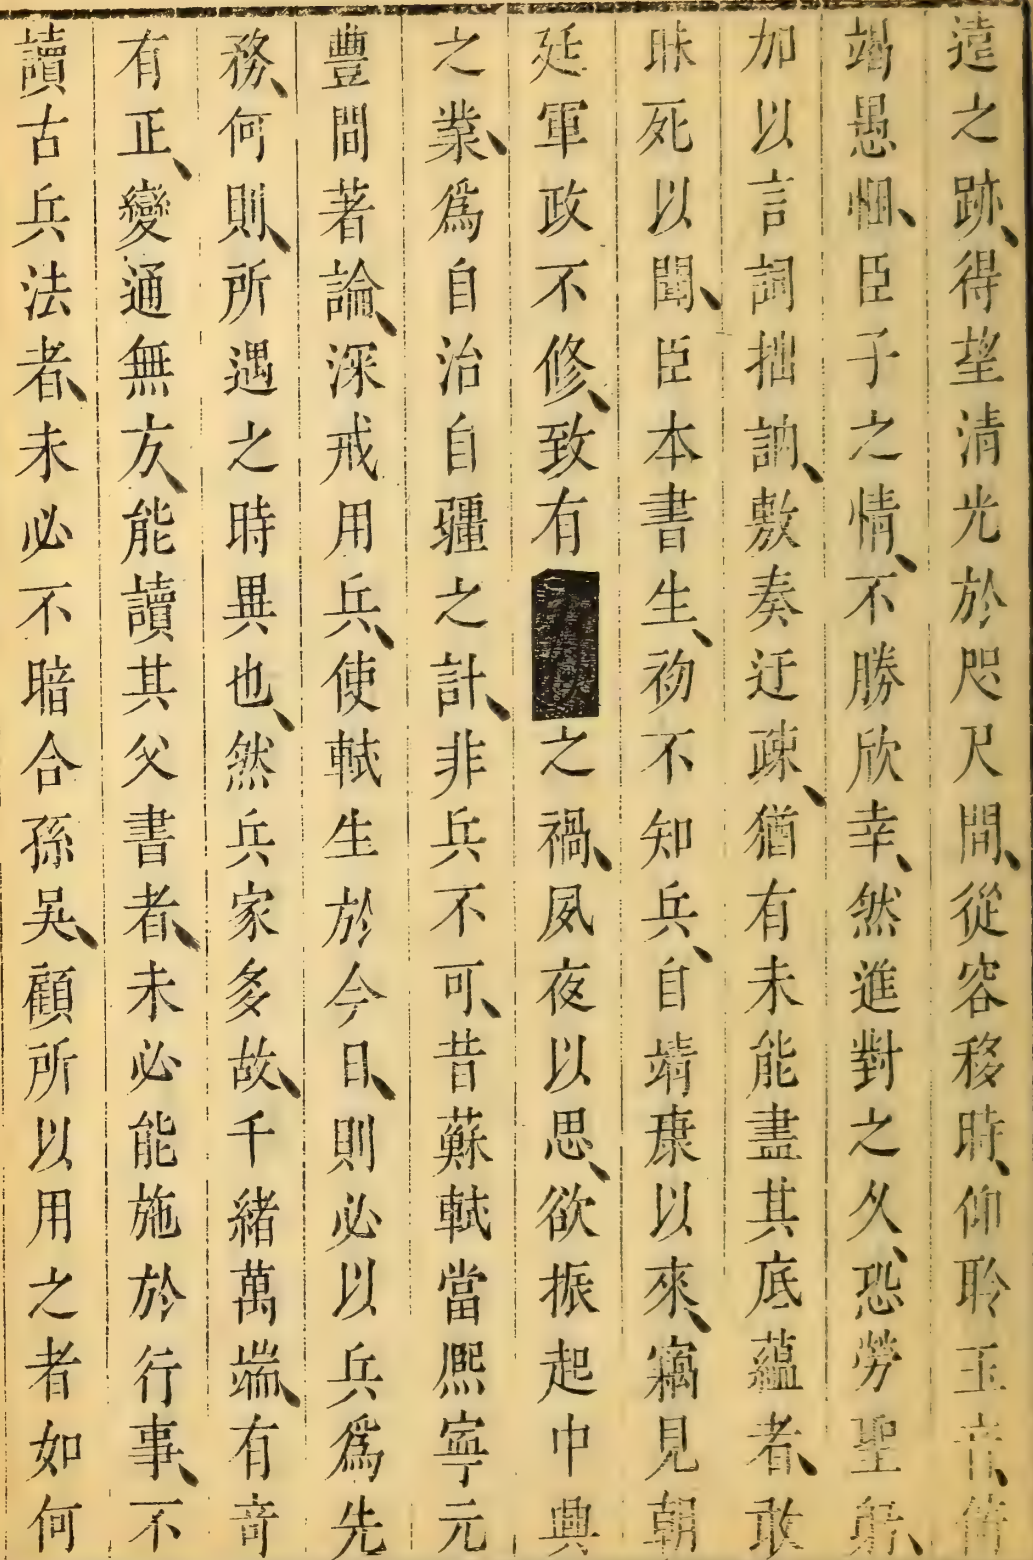 遠之跡、得望清光於咫尺間、從容移時、仰聆玉音、備
竭愚悃、臣子之情、不勝欣幸、然進對之久、恐勞聖躬、
加以言詞拙訥、敷奏迂疎、猶有未能盡其底蘊者、敢
昧死以聞、臣本書生、初不知兵、自靖康以來、竊見朝
延軍政不修、致有之禍、夙夜以思、欲振起中興
之業、爲自治自疆之計、非兵不可、昔蘇軾當熈寧元
豐間著論、深戒用兵、使軾生於今日、則必以兵爲先
務、何則、所遇之時異也、然兵家多故、千緒萬端、有竒
有正、變通無方、能讀其父書者、未必能施於行事、不
讀古兵法者、未必不暗合孫吳、顧所以用之者如何